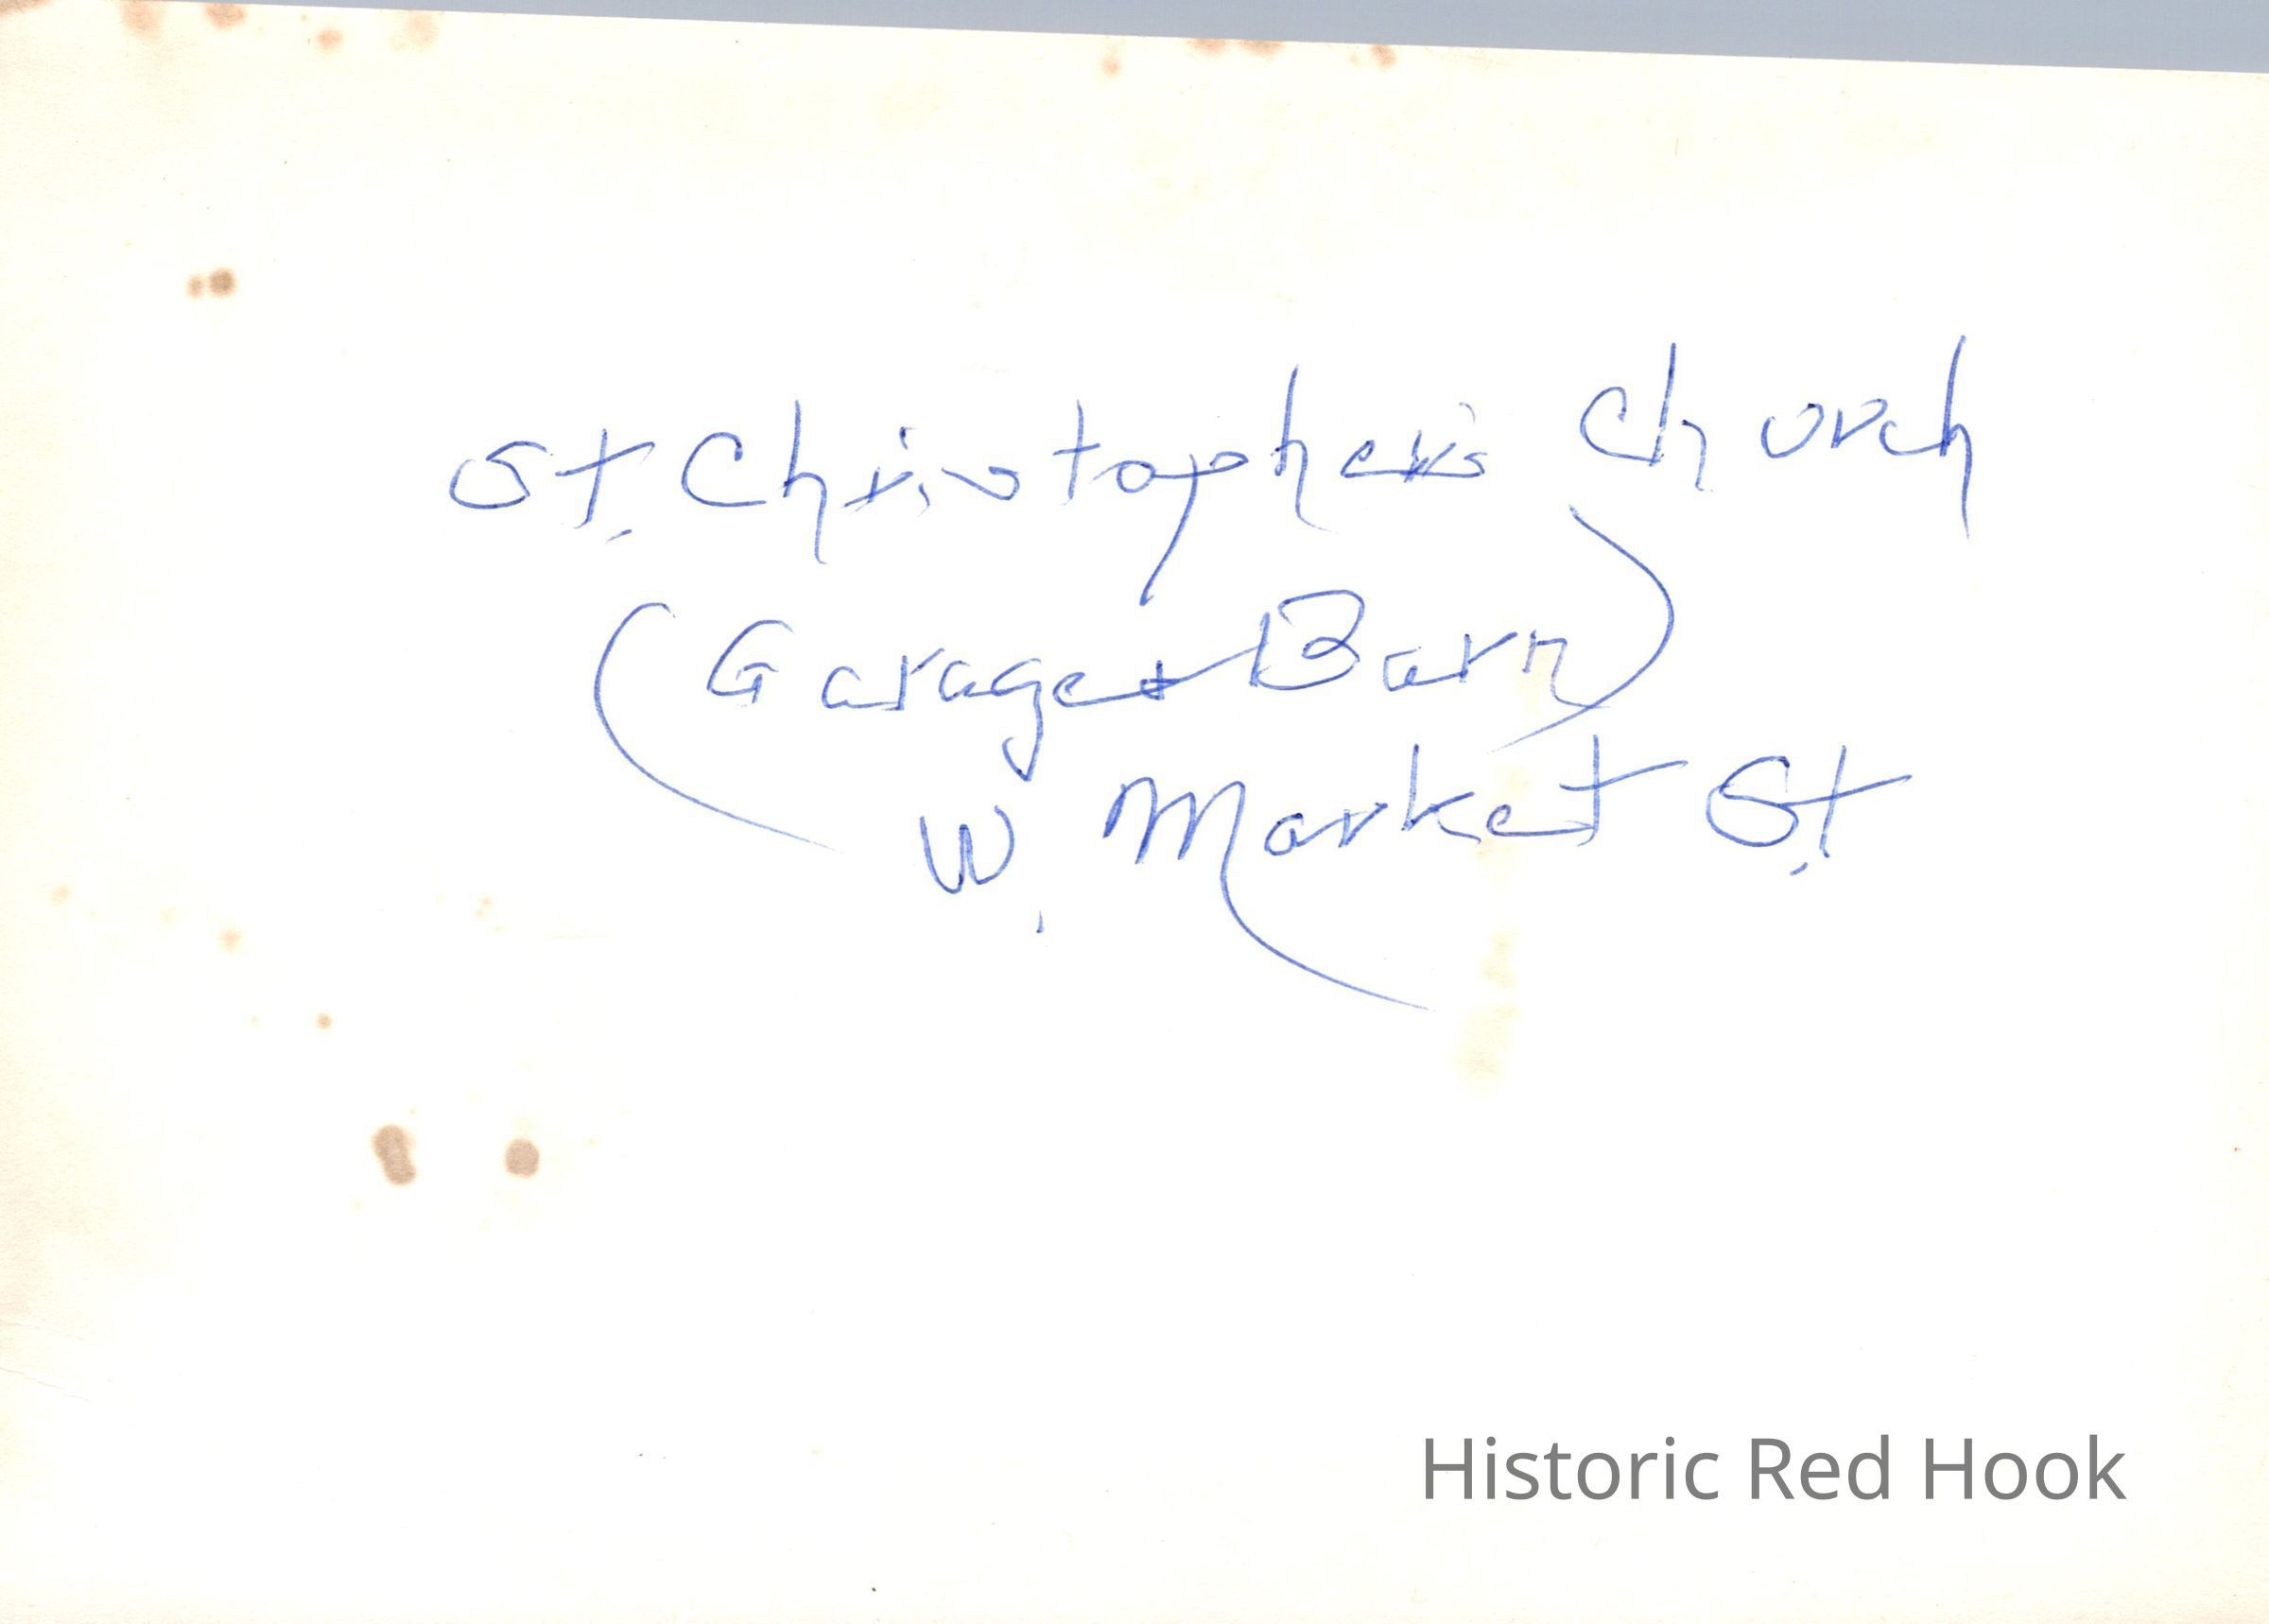 St. Christopher's Church
(Garage & Barn)
W. Market St.
Historic Red Hook